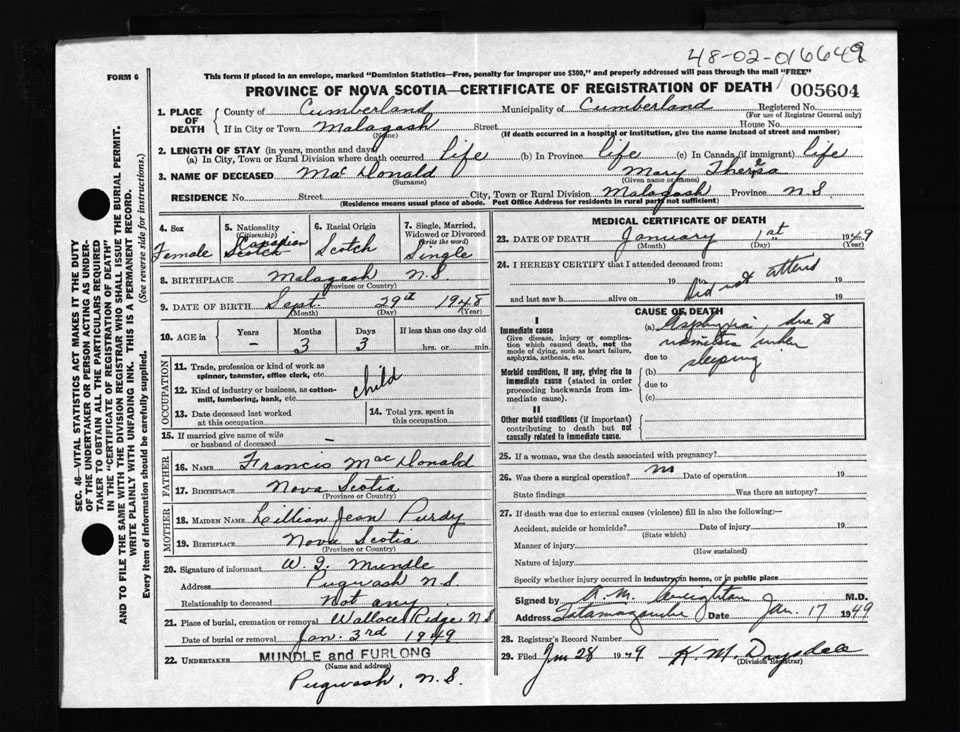 48-02-016649
FORM 6
This form if placed in an envelope, marked "Dominion Statistics—Free, penalty for improper use $300," and properly addressed will pass through the mail "FREE"
PROVINCE OF NOVA SCOTIA—CERTIFICATE OF REGISTRATION OF DEATH 005604
1. PLACE OF DEATH
County of Cumberland Municipality of Cumberland Registered No.
(For use of Registrar General only)
If in City or Town Malagash Street House No.
(Name) (If death occurred in a hospital or institution, give the name instead of street and number)
2. LENGTH OF STAY (in years, months and days)
(a) In City, Town or Rural Division where death occurred life (b) In Province life (c) In Canada (if immigrant) life
3. NAME OF DECEASED MacDonald Mary Theresa
(Surname) (Given name or names)
RESIDENCE No. Street City, Town or Rural Division Malagash Province N.S
(Residence means usual place of abode. Post Office Address for residents in rural parts not sufficient)
4. Sex
Female
5. Nationality
(Citizenship)
Canadian
Scotch
6. Racial Origin
Scotch
7. Single, Married, Widowed or Divorced
(write the word)
Single
8. BIRTHPLACE Malagash N.S.
(Province or Country)
9. DATE OF BIRTH Sept. 29th 1948
(Month) (Day) (Year)
10. AGE in
Years Months Days If less than one day old
– 3 3 hrs. or min.
OCCUPATION
11. Trade, profession or kind of work as spinner, teamster, office clerk, etc.
12. Kind of industry or business, as cotton-mill, lumbering, bank, etc.
child
13. Date deceased last worked at this occupation
14. Total yrs. spent in this occupation
15. If married give name of wife or husband of deceased –
FATHER
16. NAME Francis MacDonald
17. BIRTHPLACE Nova Scotia
(Province or Country)
MOTHER
18. MAIDEN NAME Lillian Jean Purdy
19. BIRTHPLACE Nova Scotia
(Province or Country)
20. Signature of informant W. J. Mundle
Address Pugwash N.S
Relationship to deceased Not any
21. Place of burial, cremation or removal Wallace Ridge N.S
Date of burial or removal Jan. 3rd 1949
22. UNDERTAKER MUNDLE and FURLONG
(Name and address)
Pugwash, N.S.
MEDICAL CERTIFICATE OF DEATH
23. DATE OF DEATH January 1st 1949
(Month) (Day) (Year)
24. I HEREBY CERTIFY that I attended deceased from:
19 to 19
Did not attend
and last saw h alive on 19
CAUSE OF DEATH
I
Immediate cause
Give disease, injury or complication which caused death, not the mode of dying, such as heart failure, asphyxia, asthenia, etc.
(a) Asphyxia, due to
vomitus when
due to
sleeping
Morbid conditions, if any, giving rise to immediate cause (stated in order proceeding backwards from immediate cause).
(b)
due to
(c)
II
Other morbid conditions (if important) contributing to death but not causally related to immediate cause.
25. If a woman, was the death associated with pregnancy?
26. Was there a surgical operation? no Date of operation 19
State findings Was there an autopsy?
27. If death was due to external causes (violence) fill in also the following:—
Accident, suicide or homicide? Date of injury 19
(State which)
Manner of injury
(How sustained)
Nature of injury
Specify whether injury occurred in industry, in home, or in public place
Signed by A. M. Creighton M.D.
Address Tatamagouche Date Jan. 17 1949
28. Registrar's Record Number
29. Filed Jan 28 1949 K. M. Drysdale
(Division Registrar)
SEC. 46—VITAL STATISTICS ACT MAKES IT THE DUTY
OF THE UNDERTAKER OR PERSON ACTING AS UNDER-
TAKER TO OBTAIN ALL THE PARTICULARS REQUIRED
IN THE "CERTIFICATE OF REGISTRATION OF DEATH"
AND TO FILE THE SAME WITH THE DIVISION REGISTRAR WHO SHALL ISSUE THE BURIAL PERMIT.
WRITE PLAINLY WITH UNFADING INK. THIS IS A PERMANENT RECORD.
Every item of information should be carefully supplied. (See reverse side for instructions.)